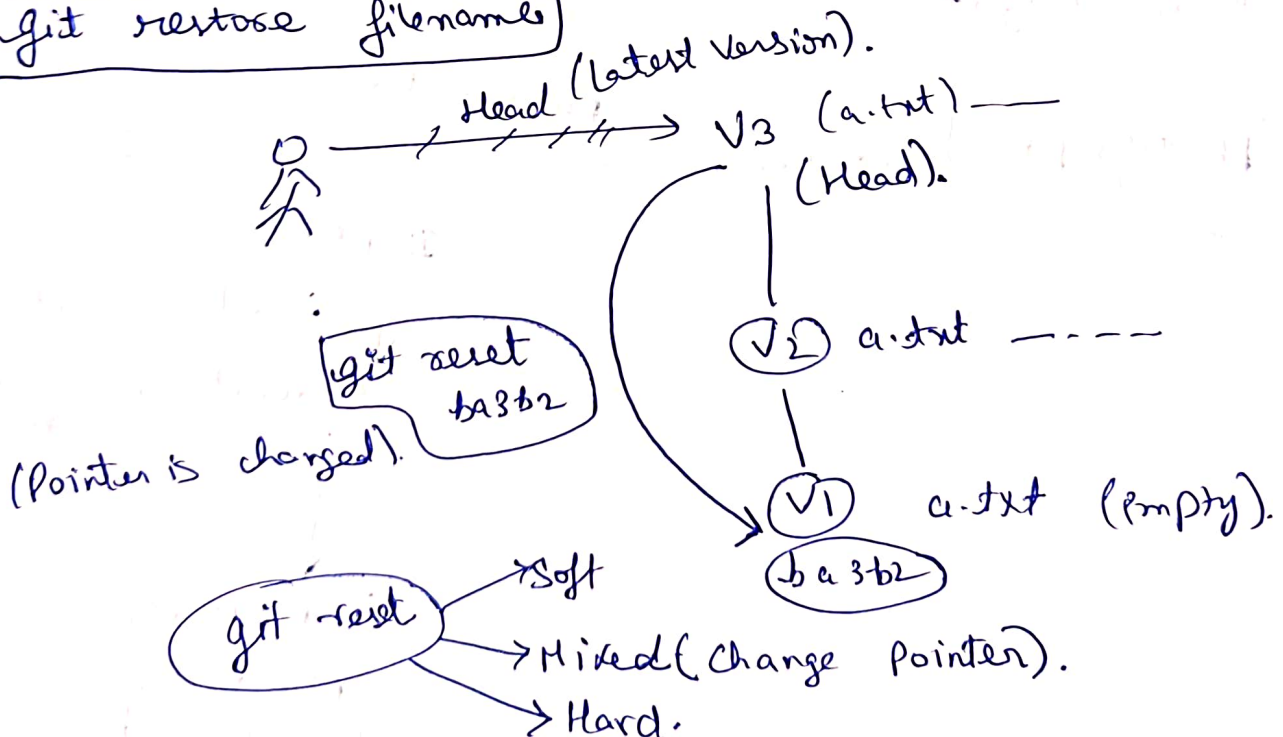 git restore filename
Head (Latest Version).
V3 (a.txt)
(Head).
V2 a.txt
git reset
ba3b2
(Pointer is changed).
V1 a.txt (Empty).
ba3b2
git reset
Soft
Mixed (Change Pointer).
Hard.